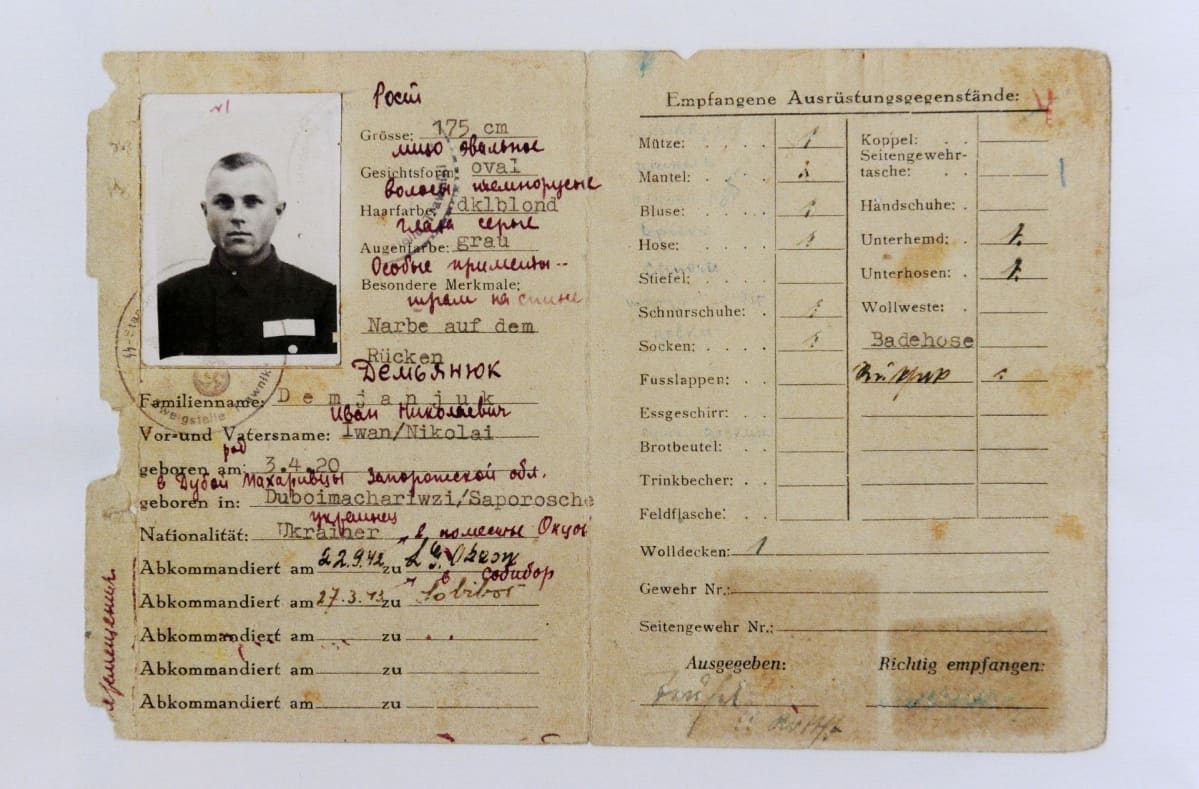 №1
Рост
Grösse: 175 cm
лицо овальное
Gesichtsform: oval
волосы темнорусые
Haarfarbe: dklblond
глаза серые
Augenfarbe: grau
Особые приметы--
Besondere Merkmale:
шрам на спине
Narbe auf dem
Rücken
Демьянюк
Familienname: Demjanjuk
Иван Николаевич
Vor-und Vatersname: Iwan/Nikolai
род
geboren am: 3.4.20
в Дубой Махаривцы Запорожской обл.
geboren in: Duboimachariwzi/Saporosche
украинец
Nationalität: Ukrainer
в поместье Окцов
Abkommandiert am 22.9.42 zu L.G. Okzow
в Собибор
Abkommandiert am 27.3.43 zu Sobibor
Abkommandiert am zu
Abkommandiert am zu
Abkommandiert am zu
Empfangene Ausrüstungsgegenstände:
Mütze: 1
Mantel: 1
Bluse: 1
Hose: 1
Stiefel:
Schnürschuhe: 1
Socken: 1
Fusslappen:
Essgeschirr:
Brotbeutel:
Trinkbecher:
Feldflasche:
Koppel:
Seitengewehr-
tasche:
Handschuhe:
Unterhemd: 1.
Unterhosen: 1.
Wollweste:
Badehose
Wolldecken: 1
Gewehr Nr.:
Seitengewehr Nr.:
Ausgegeben: Richtig empfangen: